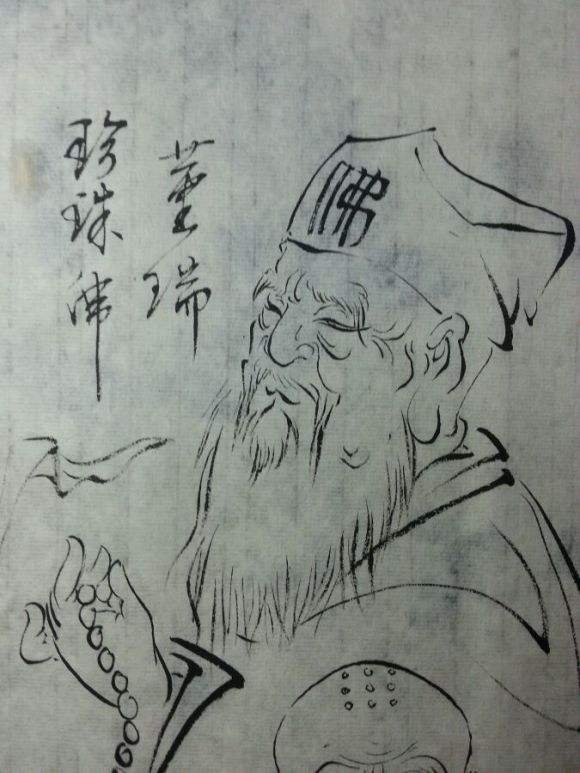 董瑞
珍珠佛
佛